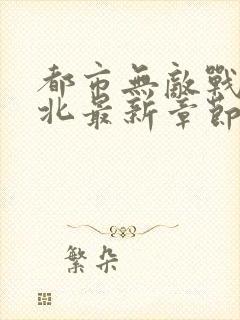 都市無敵戰
北最新章節
繁朵